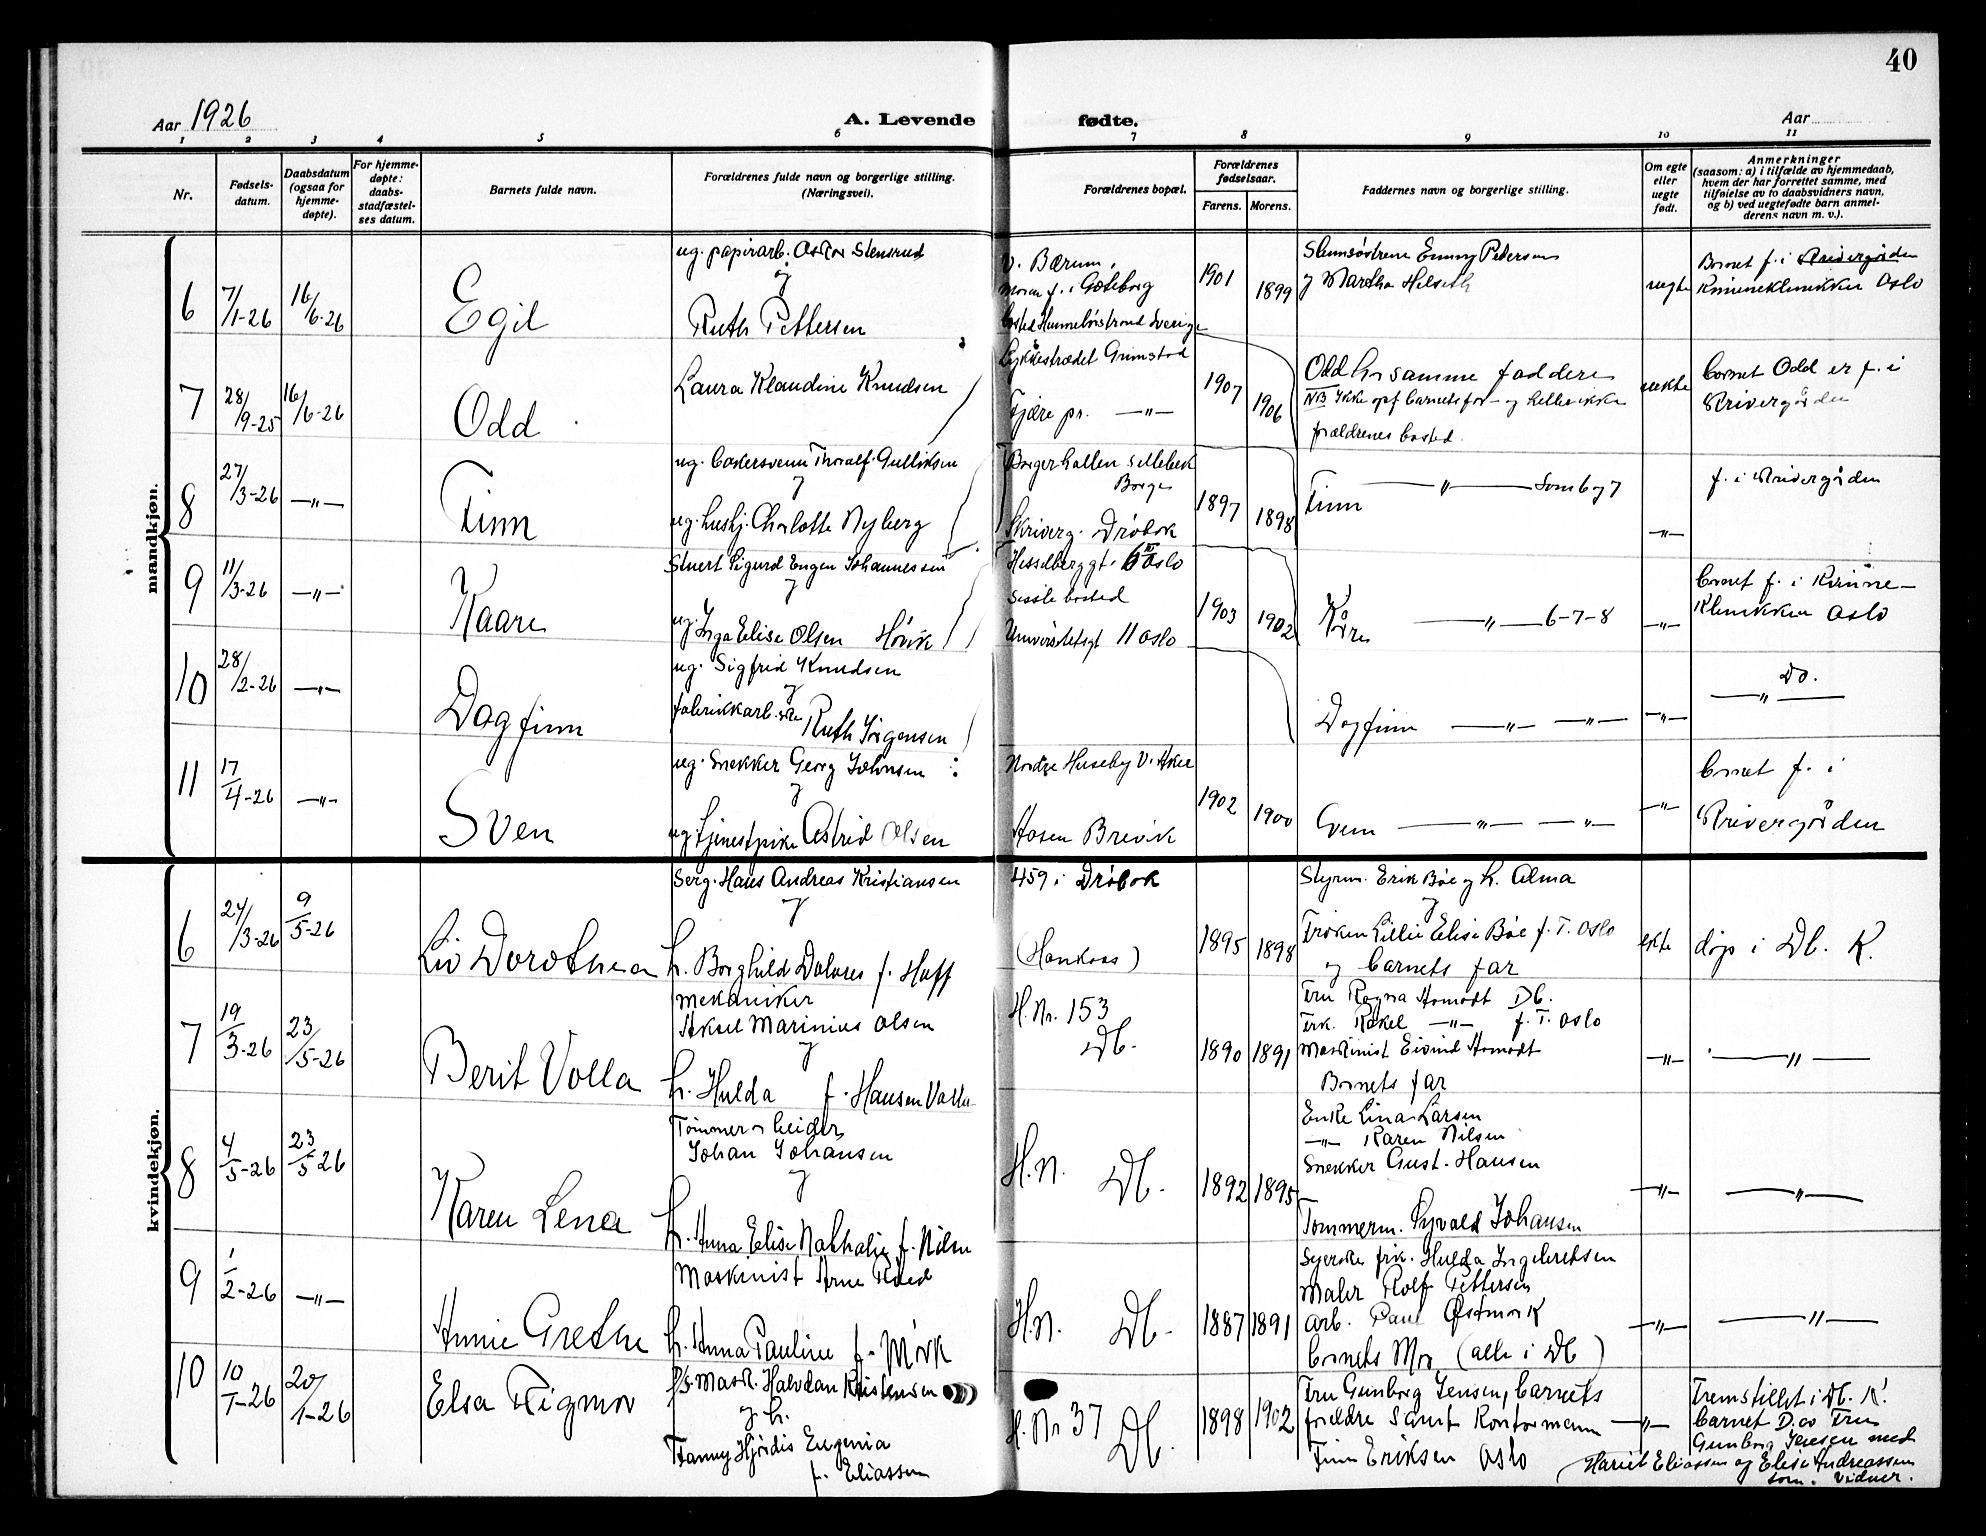 40
Aar 1926
A. Levende
fødte.
Aar
1 2 3 4 5 6 7 8 9 10 11
Nr.
Fødsels-
datum.
Daabsdatum
(ogsaa for
hjemme-
døpte).
For hjemme-
døpte:
daabs-
stadfæstel-
ses datum.
Barnets fulde navn.
Forældrenes fulde navn og borgerlige stilling.
(Næringsvei).
Forældrenes bopæl.
Forældrenes
fødselsaar.
Farens. Morens.
Faddernes navn og borgerlige stilling.
Om egte
eller
uegte
født.
Anmerkninger
(saasom: a) i tilfælde av hjemmedaab,
hvem der har forrettet samme, med
tilføielse av to daabsvidners navn,
og b) ved uegtefødte barn anmel-
derens navn m. v.).
mandkjøn.
6
7/1-26
16/6-26
Egil
ug. papirarb. Astor Stensrud
og
Ruth Pettersen
V. Bærum,
Moren f. i Göteborg
bosted Sverige
1901
1899
Emmy Pedersen
og Martha Helseth
uegte
Barnet f. i Skrivergården
Kvineklinikken Oslo
7
28/9-25
16/6-26
Odd
Laura Klaudine Knudsen
Lykkestrædet Grimstad
Fjære pr. —"—
1907
1906
Odd har samme faddere
NB Ikke opf barnets far - og heller ikke
forældrenes bosted.
uekte
barnet Odd er f. i
Skrivergården
8
27/3-26
—"—
Finn
ug. bakersvenn Thoralf Gulliksen
og
ug. hushj. Charlotte Nyberg
Borgerhallen Sellebek
Borge
Skriverg. Drøbak
1897
1898
Finn —"— som 6 og 7
—"—
f. i Skrivergården
9
11/3-26
—"—
Kaare
Stuert Sigurd Eugen Johannessen
og
ug. Inga Elise Olsen
Hesselberggt. 6 Oslo
sisste bosted
Universitetsgt 11 Oslo
1903
1902
Kåre —"— 6-7-8
—"—
barnet f. i Kvinne-
klinikken Oslo
10
28/2-26
—"—
Dagfinn
ug. Sigfrid Knudsen
og
fabrikkarb.ske Ruth Jörgensen
Dagfinn —"— —"—
—"—
Do.
—"—
11
17/4-26
—"—
Sven
ug. Snekker Georg Johnsen
og
ug. tjenestpike Astrid Olsen
Nordre Huseby V. Aker
Åsen Brevik
1902
1900
Sven —"— —"—
—"—
barnet f. i
Skrivergården
kvindekjøn.
6
24/3-26
9/5-26
Liv Dorothea
Serg. Hans Andreas Kristiansen
og
h. Borghild Dolores f. Hoff
459 i Drøbak
(Hankoas)
1895
1898
Styrm. Erik Bøe og h. Alma
og
Frøken Lillie Elise Bøe f. T. Oslo
og barnets far
ekte
døp i Db. K.
7
19/3-26
23/5-26
Berit Volla
mekaniker
Aksel Marinius Olsen
og
h. Hulda f. Hansen Volla
H. Nr. 153
Db.
1890
1891
Fru Ragna Aamodt Db.
Frk. Rakel —"— f. T. Oslo
Maskinist Eivind Aamodt
Barnets far
—"—
—"—
8
4/5-26
23/5 26
Karen Lena
Tømmerarbeider
Johan Johansen
og
h. Anna Elise Nathalie f. Nilsen
H. N. Db.
1892
1895
Enke Lina Larsen
—"— Karen Nilsen
Snekker Gust. Hansen
Tømmerm. Syvald Johansen
—"—
—"—
9
1/2-26
—"—
Annie Grethe
Maskinist Arne
h. Anna Pauline f. Mörk
H. N. Db.
1887
1891
Syerske frk. Hulda Ingebretsen
Maler Rolf Pettersen
Arb. Paul Østmork
barnets Mor (alle i Db)
—"—
—"—
10
10/1-26
20/1-26
Elsa Rigmor
f/s. Mask. Halvdan Kristensen
og h.
Fanny Hjördis Eugenia
f. Eliassen
H. Nr 37 Db.
1898
1902
Fru Gunborg Jensen, barnets
forældre samt Kontormann
Finn Eriksen Oslo
—"—
Fremstillet i Db. K.
barnet D. av Fru
Gunborg Jensen med
Harriet Eliassen og Elise Andreassen
som vidner.